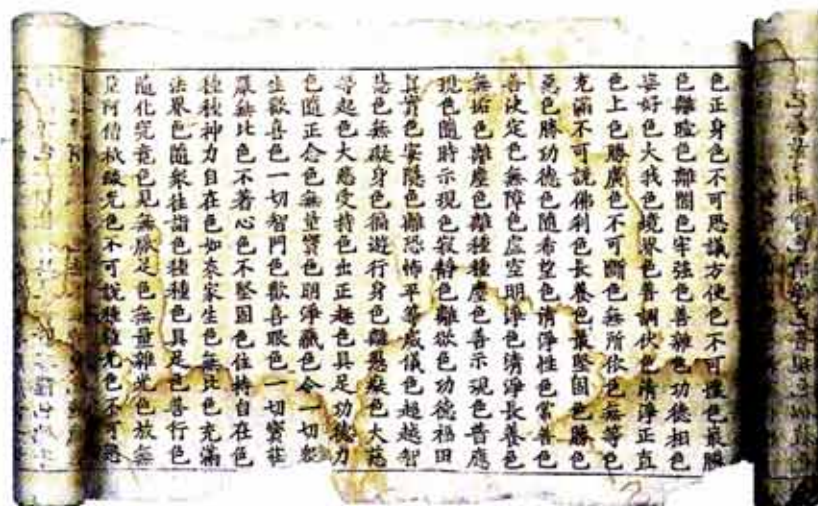 色正身色不可思議方便色不可壞色最勝
色離曀色離闇色牢強色善雜色功德相色
姿好色大我色境界色善調伏色清淨正直
色上色勝廣色不可斷色無所依色無等色
充滿不可說佛刹色長養色最堅固色勝色
惡色勝功德色隨希望色清淨性色常善色
善決定色無障色虛空明淨色清淨長養色
無垢色離塵色離種種塵色善示現色普應
現色隨時示現色寂靜色離欲色功德福田
真實色安隱色離恐怖平等威儀色超越智
慧色無礙身色循遊行身色離愚癡色大慈
等起色大悲受持色出正趣色具足功德力
色隨正念色無量寶色明淨藏色令一切眾
生歡喜色一切智門色歡喜眼色一切寶莊
嚴無比色不著心色不堅固色住持自在色
種種神力自在色如來家生色無比色充滿
法界色隨眾往詣色種種色具足色善行色
隨化究竟色見無厭足色無量雜光色放無
阿僧祇燄光色不可說種種光色不可思